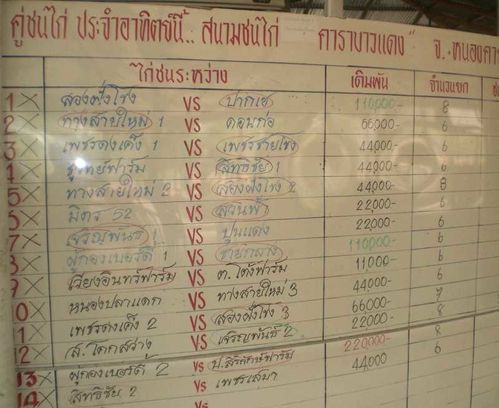 คู่ชนไก่ ประจำอาทิตย์นี้.. สนามชนไก่ คาราบาวแดง" จ.-หนองคา
ไก่ชนระหว่าง เดิมพัน จำนวนยก
1 สองฝั่งโขง VS ปากเซ 110,000- 8
2 ทางสายใหม่ 1 VS ดอนก่อ 66,000- 6
3 เพชรดงเค็ง 1 VS เพชรชายโขง 44,000- 6
4 VS สิทธิชัย 1 44,000- 6
5 ทางสายใหม่ 2 VS สองฝั่งโขง 2 44,000- 8
มิตร 52 VS สวนฟ้า 22,000- 6
7 เจริญพันธ์ 1 VS ปูนแดง 22,000- 6
8 ผู้กองเบอร์ดี้ 1 VS ชายกลาง 110,000- 8
9 เวียงอินทร์ฟาร์ม VS ต.โต้งฟาร์ม 11,000- 6
10 หนองปลาแดก VS ทางสายใหม่ 3 44,000- 6
เพชรดงเค็ง 2 VS สองฝั่งโขง 3 66,000- 7
12 ส.โคกสว่าง VS เจริญพันธ์ 2 22,000- 8
13 ผู้กองเบอร์ดี้ 2 VS 220,000- 8
14 สิทธิชัย 2 VS เพชรเสมา 44,000 6
VS